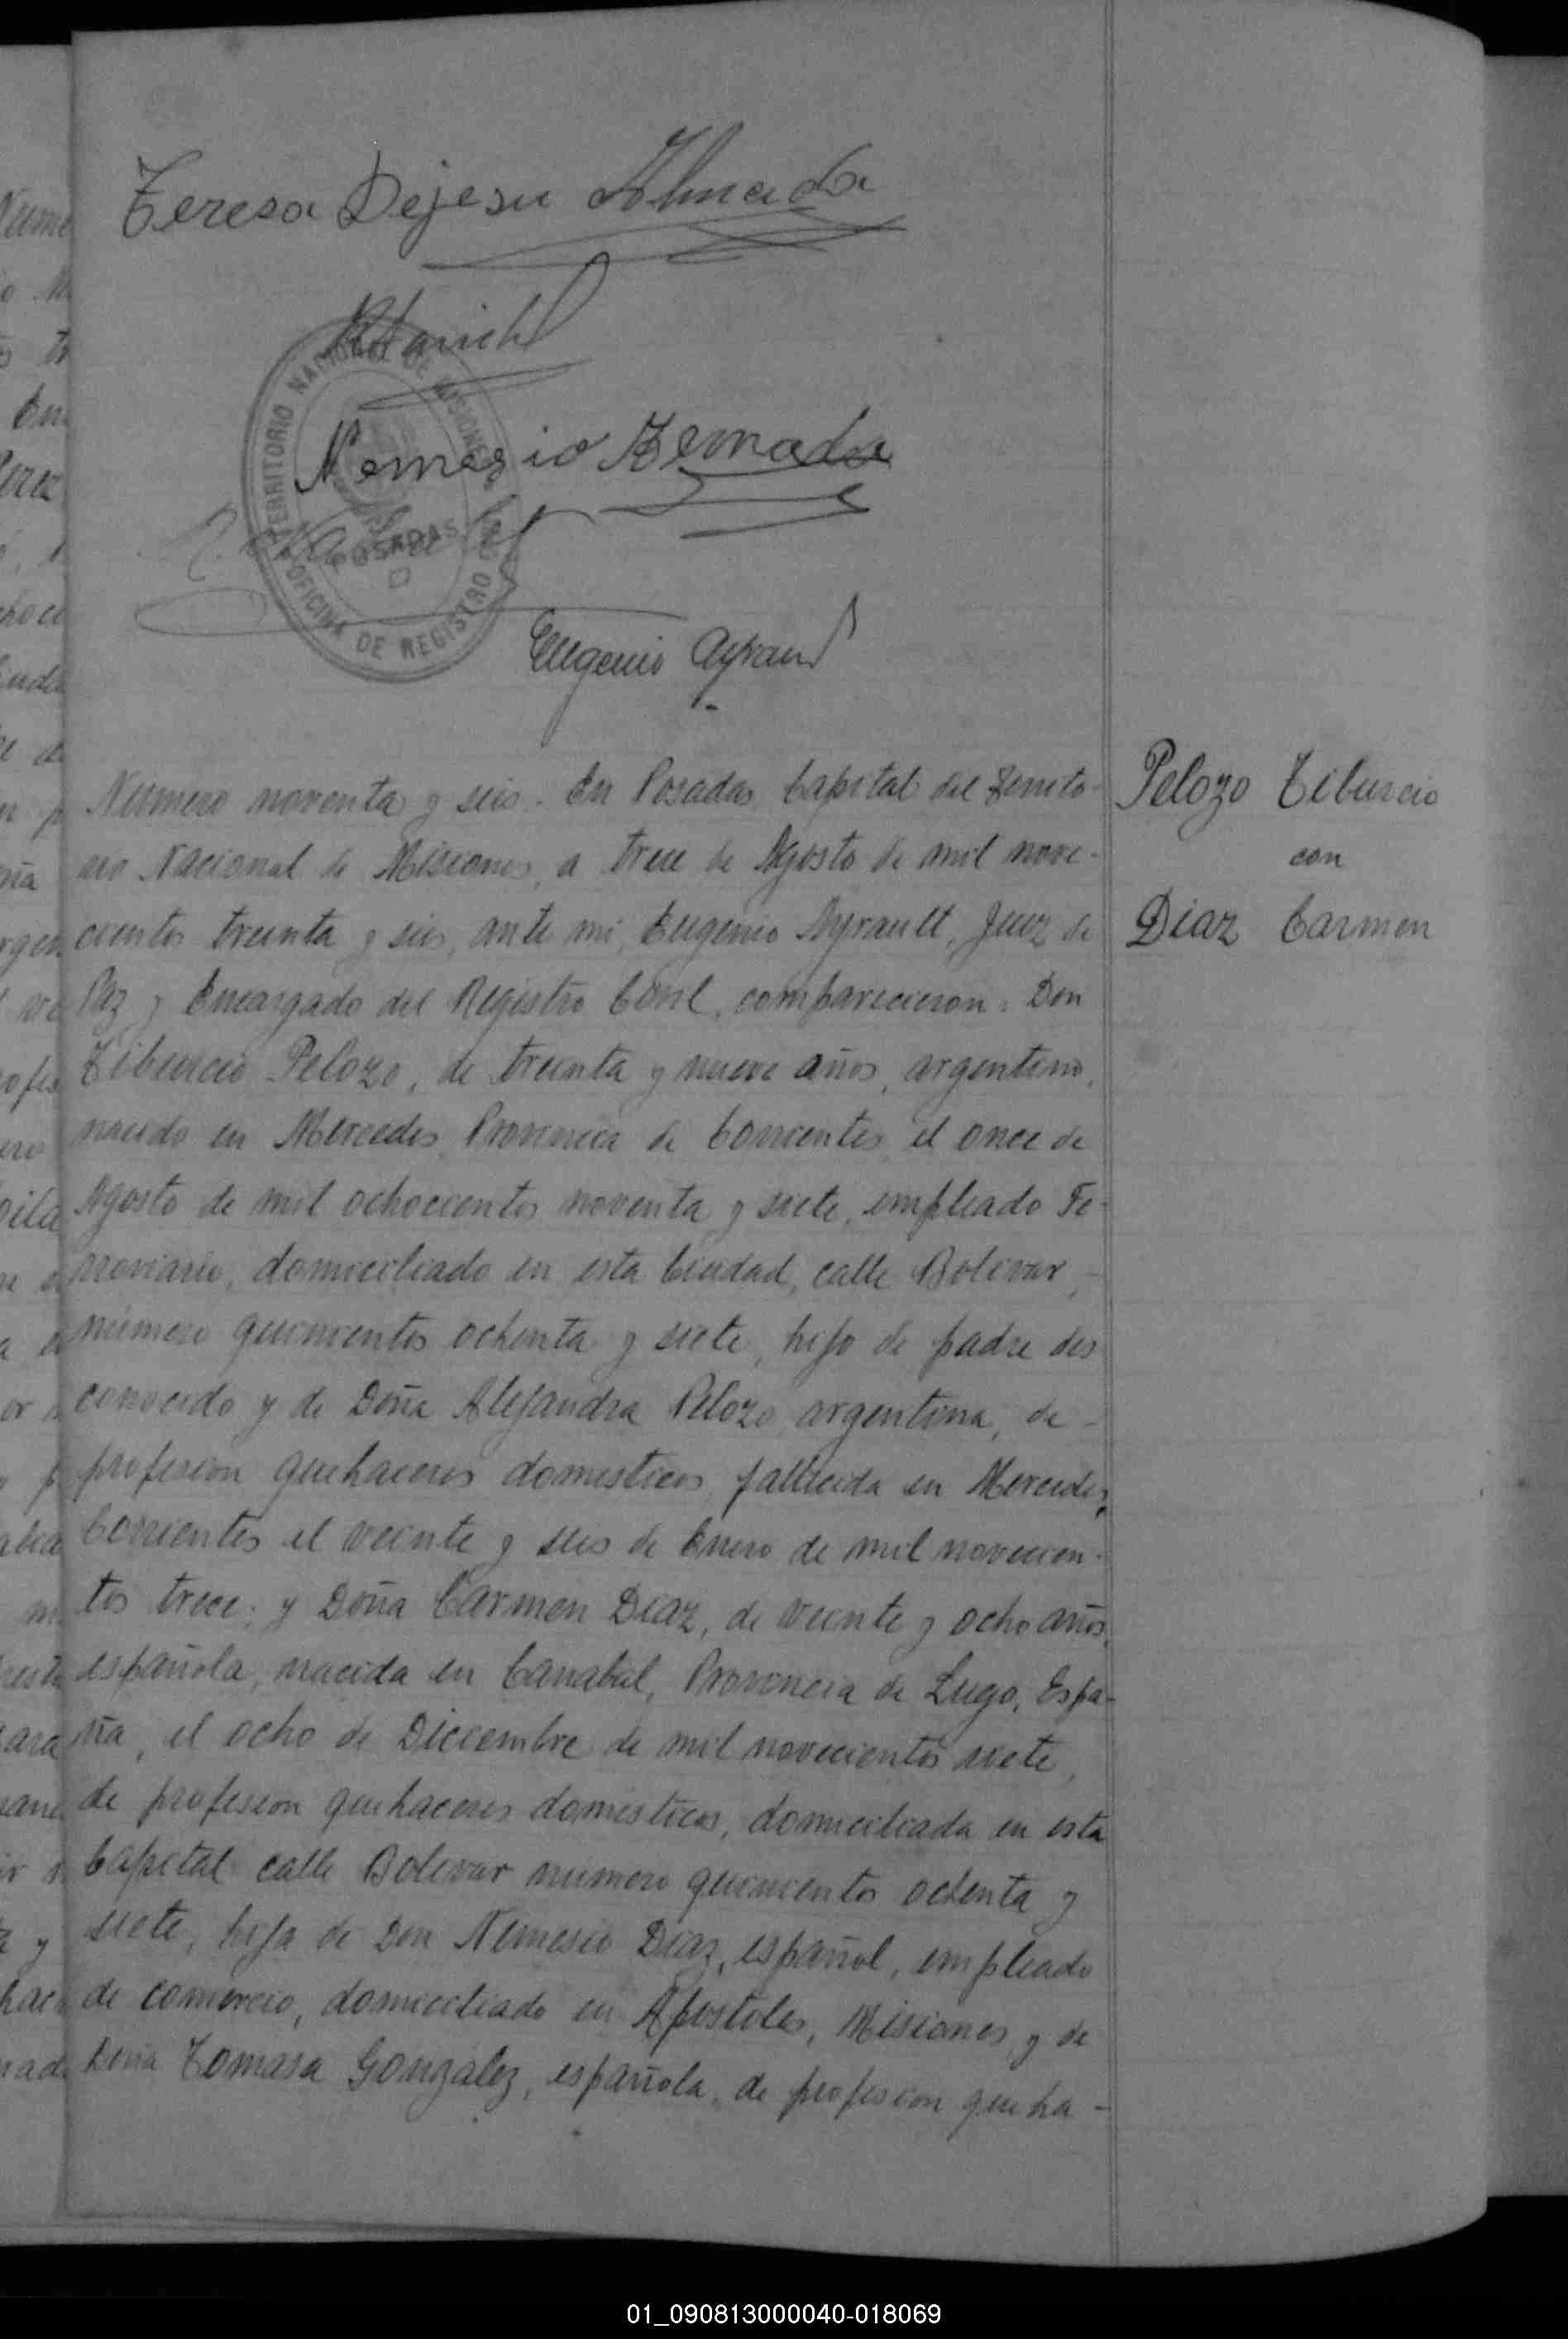 Teresa Dejesu Almada
Nemesio
TERRITORIO NACIONAL DE MISIONES
POSADAS
OFICINA DE REGISTRO
Eugenio Ayrault
Numero noventa y seis. En Posadas Capital del Territo-
rio Nacional de Misiones, a trece de Agosto de mil nove-
cientos treinta y seis, ante mi, Eugenio Ayrault, Juez de
Paz y Encargado del Registro Civil, comparecieron: Don
Tiburcio Pelozo, de treinta y nueve años, argentino,
nacido en Mercedes, Provincia de Corrientes, el once de
Agosto de mil ochocientos noventa y siete, empleado Fe-
rroviario, domiciliado en esta Ciudad, calle Bolivar,-
número quinientos ochenta y siete, hijo de padre des
conocido y de Doña Alejandra Pelozo, argentina, de-
profesion quehaceres domesticos, fallecida en Mercedes,
Corrientes el veinte y seis de Enero de mil novecien-
tos trece; y Doña Carmen Diaz, de veinte y ocho años,
española, nacida en Canabal, Provincia de Lugo, Espa-
ña, el ocho de Diciembre de mil novecientos siete,
de profesion quehaceres domesticos, domiciliada en esta
Capital calle Bolivar número quinientos ochenta y
siete, hija de Don Nemesio Diaz, español, empleado
de comercio, domiciliado en Apostoles, Misiones, y de
Doña Tomasa Gonzalez, española, de profesion queha-
Pelozo Tiburcio
con
Diaz Carmen
01_090813000040-018069